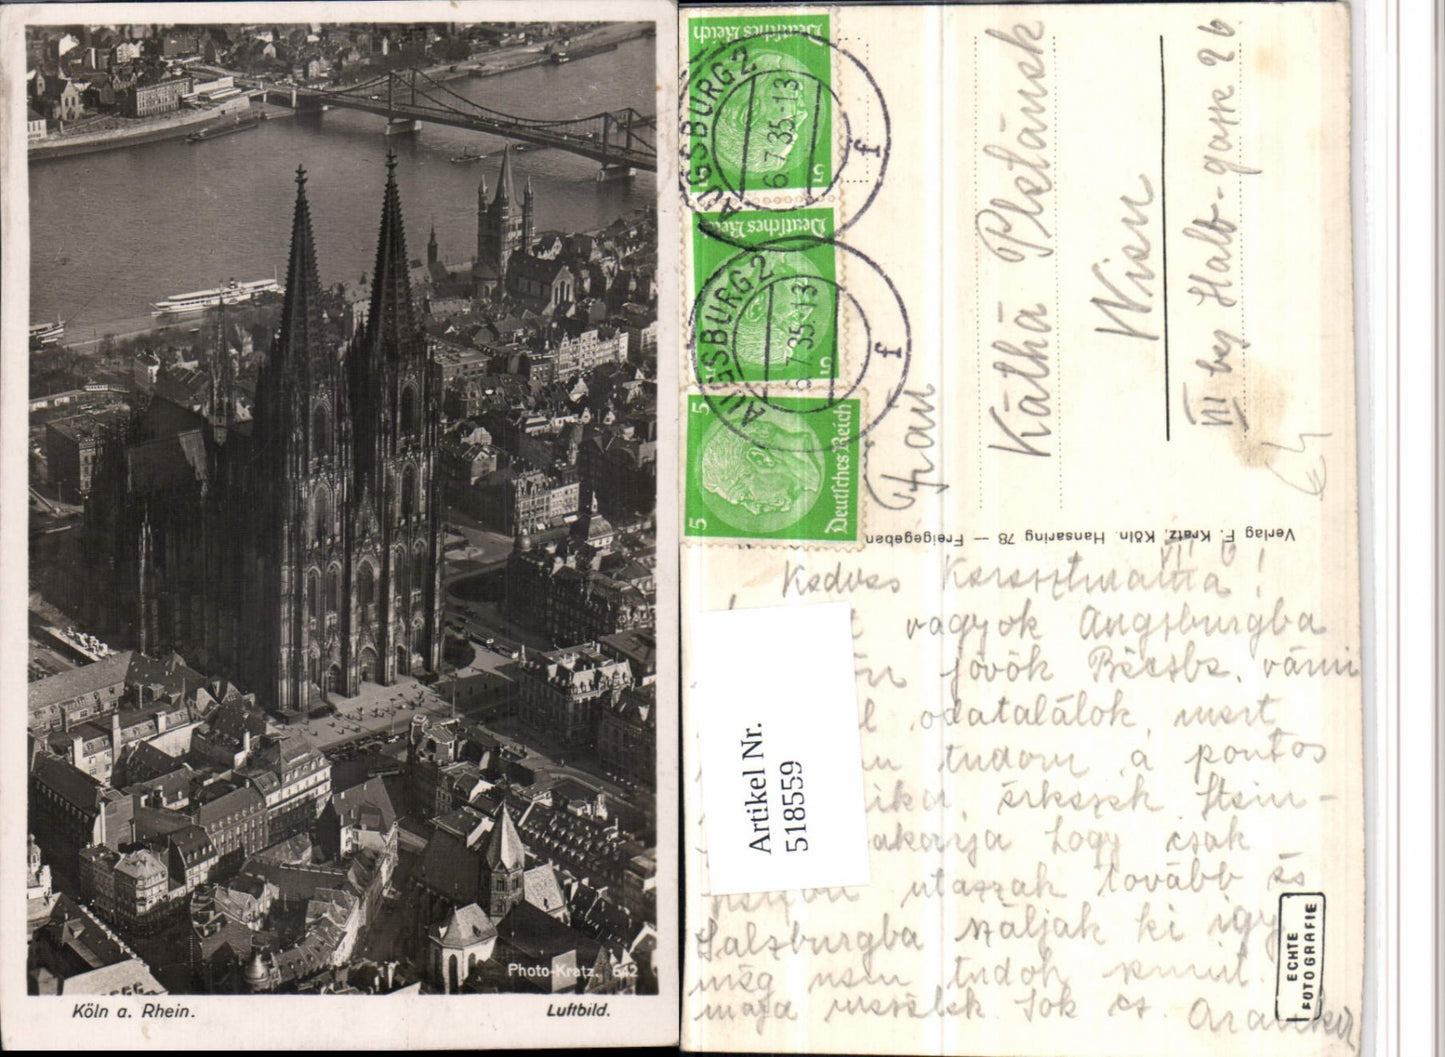 Photo-Kratz. 642
Köln a. Rhein.
Luftbild.
Deutsches Reich
5
AUGSBURG 2
6.7.35.13
f
Deutsches Reich
5
AUGSBURG 2
6.7.35.13
f
Deutsches Reich
5
5
Frau
Käthä
Wien
VII
Halb-gasse 26
Verlag F. Kratz, Köln. Hansaring 78 — Freigegeben
VII 6
Kedves Keresztmama!
vagyok Augsburgba
jövök Bécsbe, várni
odatalálok, mert
tudom a pontos
érkezek Stein-
akarja hogy csak
utazzak tovább és
Salzburgba szálljak ki így
még nem tudok semmit.
majd mesélek. Sok
Artikel Nr.
518559
ECHTE
FOTOGRAFIE